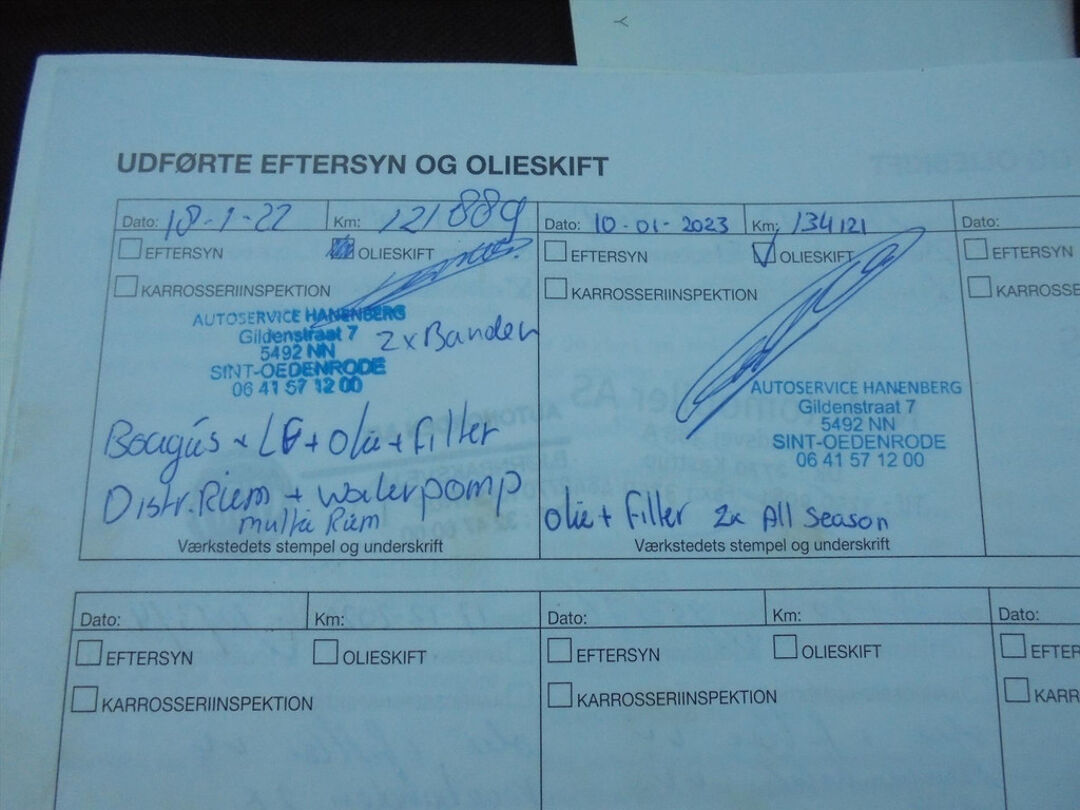 UDFØRTE EFTERSYN OG OLIESKIFT
Dato: 18-1-22 Km: 121889
EFTERSYN OLIESKIFT
KARROSSERIINSPEKTION
AUTOSERVICE HANENBERG
Gildenstraat 7
5492 NN
SINT-OEDENRODE
06 41 57 12 00
2x Banden
+ olie + filter
Distr. Riem + waterpomp
multie Riem
Værkstedets stempel og underskrift
Dato: 10-01-2023 Km: 134121
EFTERSYN OLIESKIFT
KARROSSERIINSPEKTION
AUTOSERVICE HANENBERG
Gildenstraat 7
5492 NN
SINT-OEDENRODE
06 41 57 12 00
olie + filter 2x All Season
Værkstedets stempel og underskrift
Dato:
EFTERSYN
KARROSSE
Dato: Km:
EFTERSYN OLIESKIFT
KARROSSERIINSPEKTION
Dato: Km:
EFTERSYN OLIESKIFT
KARROSSERIINSPEKTION
Dato:
EFTER
KARR